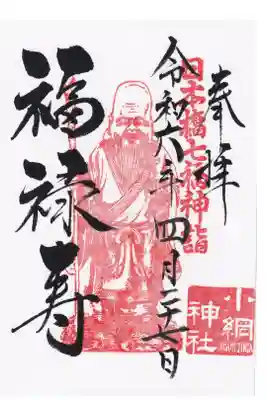 奉拝
日本橋七福神詣
令和六年四月二十六日
福禄寿
小網
神社
KOAMIJINJA